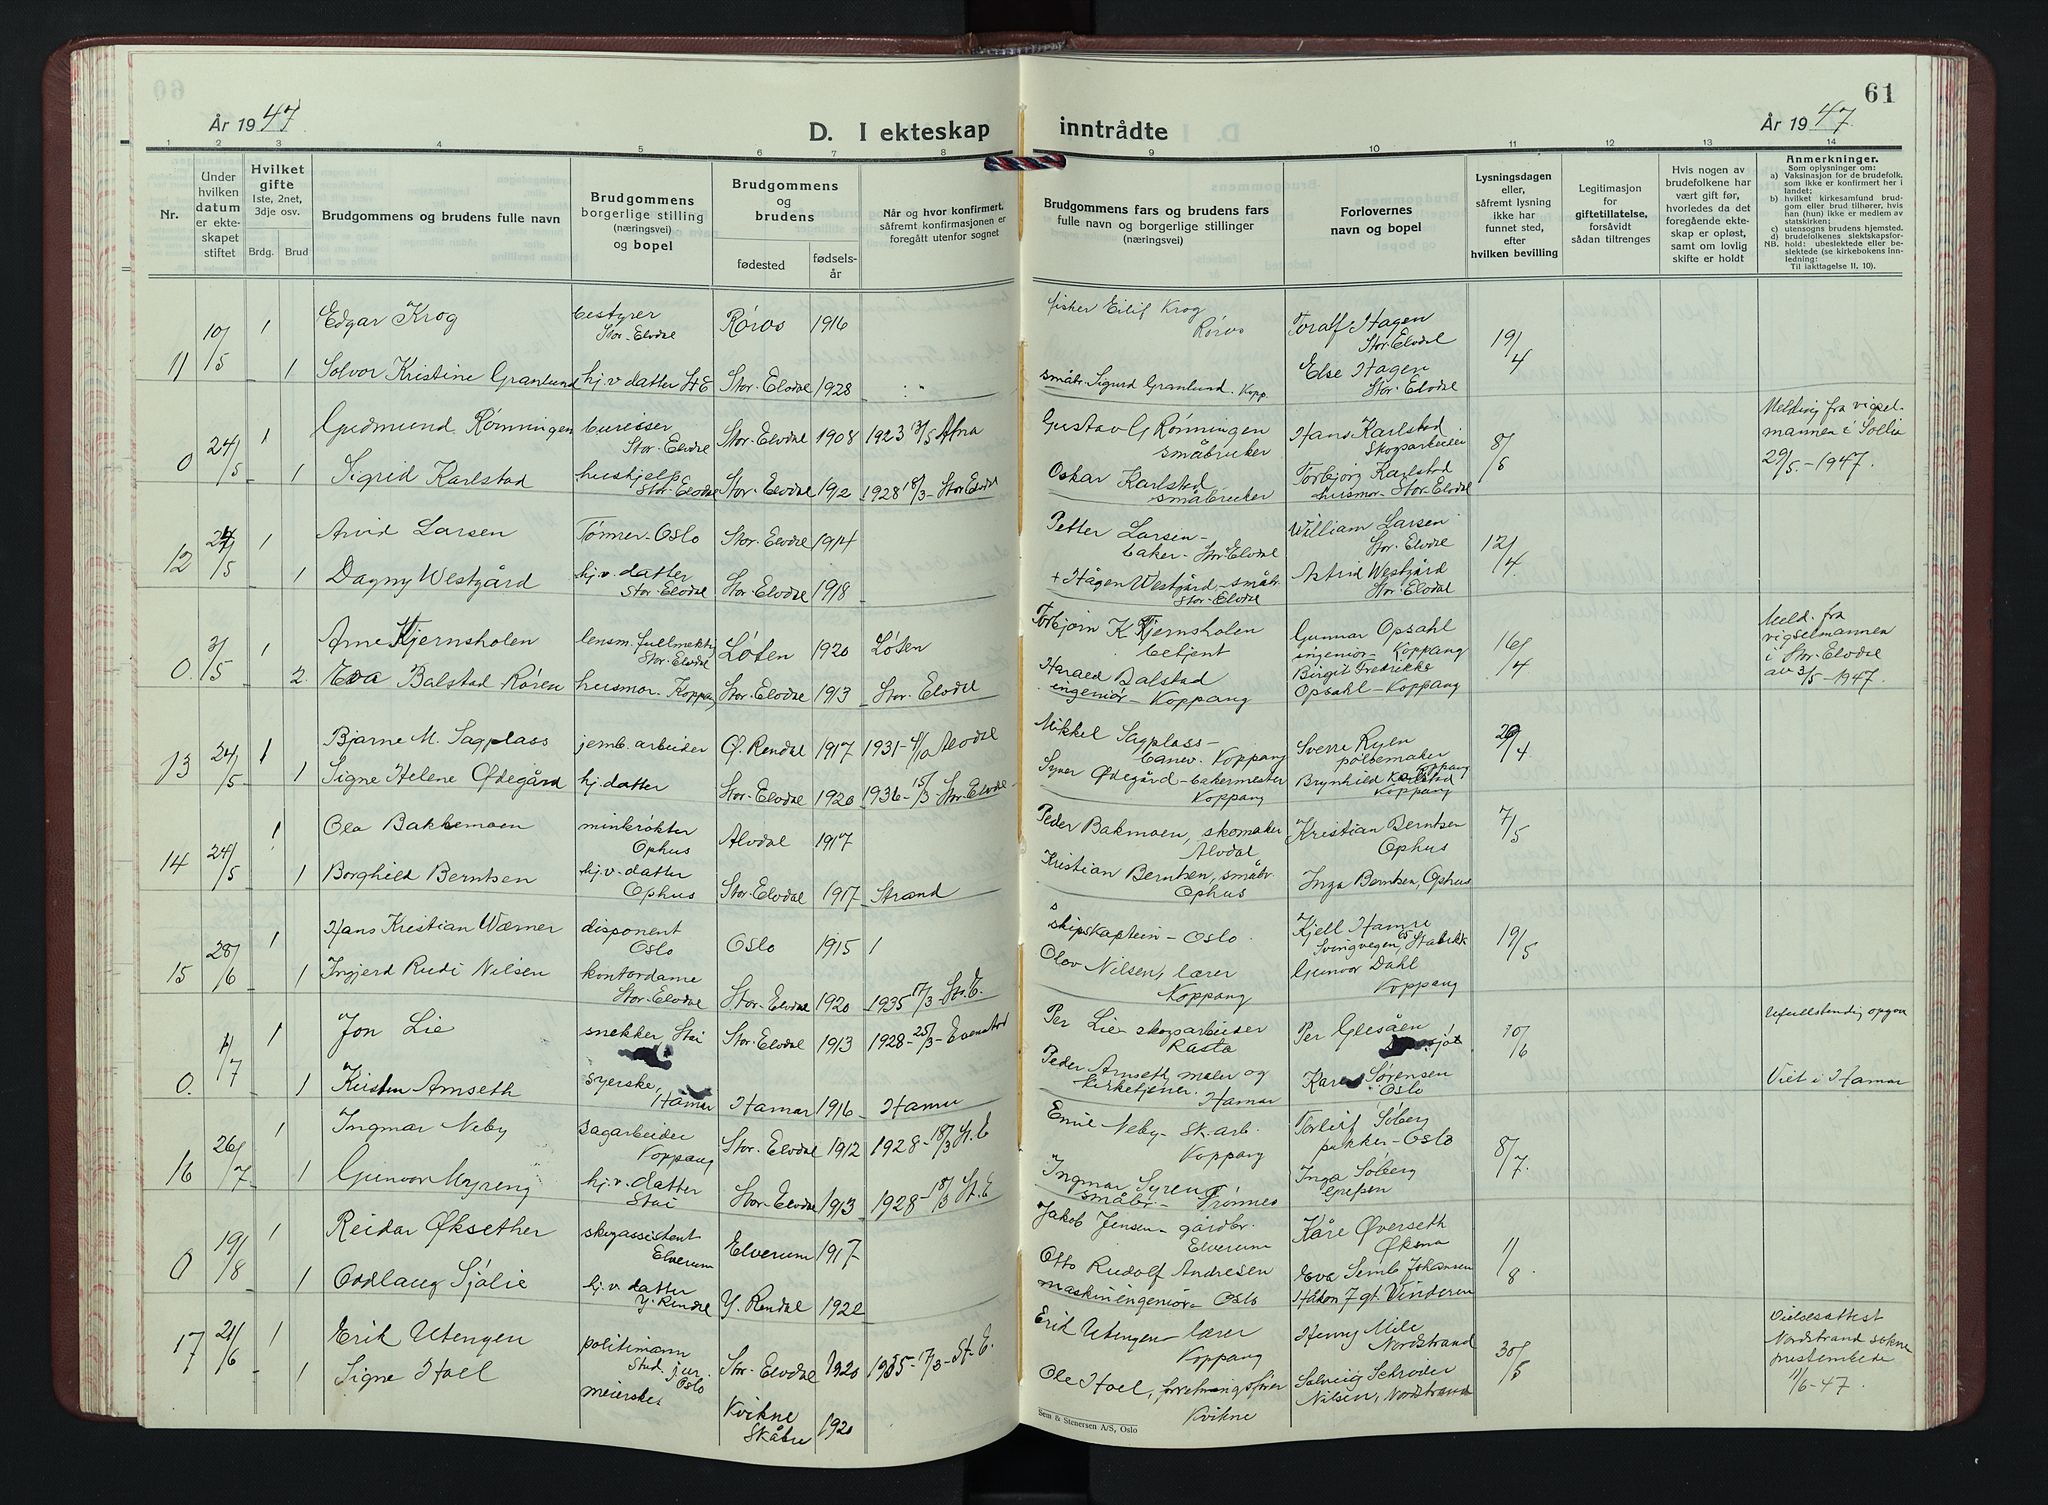 År 1947
D. I ekteskap inntrådte
61
År 1947.
1 2 3 4 5 6 7 8 9 10 11 12 13 14
Nr.
Under hvilken datum er ekteskapet stiftet
Hvilket gifte 1ste, 2net, 3dje osv.
Brdg. Brud
Brudgommens og brudens fulle navn
Brudgommens borgerlige stilling (næringsvei) og bopel
Brudgommens og brudens
fødested fødselsår
Når og hvor konfirmert, såfremt konfirmasjonen er foregått utenfor sognet
Brudgommens fars og brudens fars fulle navn og borgerlige stillinger (næringsvei)
Forlovernes navn og bopel
Lysningsdagen eller, såfremt lysning ikke har funnet sted, efter hvilken bevilling
Legitimasjon for giftetillatelse, forsåvidt sådan tiltrenges
Hvis nogen av brudefolkene har vært gift før, hvorledes da det foregående ekteskap er opløst, samt om lovlig skifte er holdt
Anmerkninger.
Som oplysninger om:
a) Vaksinasjon for de brudefolk, som ikke er konfirmert her i landet;
b) hvilket kirkesamfund brudgom eller brud tilhører, hvis han (hun) ikke er medlem av statskirken;
c) utensogns brudens hjemsted.
d) brudefolkenes slektskapsforhold: ubeslektede eller beslektede (se kirkebokens Innledning:
NB.
Til iakttagelse II, 10).
11 10/5 1 Edgar Krog bestyrer Stor-Elvdal Røros 1916 fisker Eilif Krog Røros Toralf Hagen Stor-Elvdal 19/4
1 Solvor Kristine Granlund hj.v. datter St E Stor-Elvdal 1928 småbr. Sigurd Granlund. Kopp. Else Hagen Stor-Elvdal
0 24/5 1 Gudmund Rønningen bureiser Stor-Elvdal Stor-Elvdal 1908 1923 13/5 Atna Gustav G Rønningen småbruker Hans Karlstad Skogsarbeider 8/5 Melding fra vigselmannen i Sollia 29/5-1947.
1 Sigrid Karlstad hushjelp Stor-Elvdal Stor-Elvdal 1912 1928 18/3-Stor Elvdal Oskar Karlstad småbruker Torbjørg Karlstad husmor-Stor-Elvdal
12 24/5 1 Arvid Larsen Tømrer-Oslo Stor-Elvdal 1914 Petter Larsen-baker-Stor-Elvdal William Larsen Stor-Elvdal 12/4
1 Dagny Westgård hj.v. datter Stor-Elvdal Stor-Elvdal 1918 + Hågen Westgård-småbr. Stor-Elvdal Astrid Westgård Stor-Elvdal
0 3/5 1 Arne Kjernsholen lensm. fullmektig Stor-Elvdal Løten 1920 Løten Torbjørn Kjernsholen betjent Gunnar Opsahl ingeniør-Koppang 16/4 Meld. fra vigselmannen i Stor-Elvdal av 3/5-1947.
2 Eva Balstad Røren husmor-Koppang Stor-Elvdal 1913 Stor-Elvdal Harald Balstad ingeniør-Koppang Birgit Fredrikke Opsahl-Koppang
13 24/5 1 Bjarne M. Sagplass jernb. arbeider Ø. Rendal 1917 1931-4/10 Alvdal Mikkel Sagplass-banev. Koppang Sverre Ryen pølsemaker Koppang 29/4
1 Signe Helene Ødegård hj. datter Stor-Elvdal 1920 1936-15/3 Stor-Elvdal Syver Ødegård-bakermester Koppang Brynhild Karlstad Koppang
14 24/5 1 Ola Bakkemoen minkrøkter Ophus Alvdal 1917 Peder Bakmoen, skomaker Alvdal Kristian Berntsen Ophus 7/5
1 Borghild Berntsen hj.v-datter Ophus Stor-Elvdal 1917 Strand Kristian Berntsen, småbr. Ophus Inga Berntsen, Ophus
15 28/6 1 Hans Kristian Wærner disponent Oslo Oslo 1915 skipskaptein-Oslo. Kjell Hamre Svingvegen Stabekk 19/5
1 Ingjerd Rudi Nilsen kontordame Stor-Elvdal Stor-Elvdal 1920 1935 17/3-St.E. Olov Nilsen, lærer Koppang Gunvor Dahl Koppang
0. 7 1 Jon Lie snekker, Stai Stor-Elvdal 1913 1928-25/3-Evenstad Per Lie-skogsarbeider Rasta Per Glesåen 10/6 Ufullstendig opgav
1 Kirsten Amseth syerske, Hamar Hamar 1916 Hamar Peder Amseth, maler og kirketjener. Hamar Karen Sørensen Oslo Viet i Hamar
16 26/7 1 Ingmar Neby sagarbeider Koppang Stor-Elvdal 1912 1928-18/3 St. E Emil Neby-Sk.arb. Koppang Torleif Søberg pakker-Oslo 8/7.
1 Gunvor Myreng hj.v. datter Stai Stor-Elvdal 1913 1928-18/3 St. E Ingmar Syren småbr. Trønnes Inga Søberg Grefsen
0 19/8 1 Reidar Øksether skogassistent Elverum Elverum 1917 Jakob Jensen-gårdbr. Elverum Kåre Øverseth Øksna 11/8
1 Oddlaug Sjølie hj.v. datter Y. Rendal Y. Rendal 1922 Otto Rudolf Andresen maskiningeniør-Oslo Eva Semb Johansen Håkon 7 gt. Vinderen
17 21/6 1 Erik Utengen politimann Stud. jur. Oslo Stor-Elvdal 1920 1935-17/3-St. E. Erik Utengen-lærer Koppang Henny Mile Nordstrand 30/5 Vielsesattest Nordstrand sokneprestembede 11/6-47.
1 Signe Hoel meierske Kvikne Skåbu 1920 Ole Hoel, forretningsfører Kvikne Solveig Schrøder Nilsen, Nordstrand
Sem & Stenersen A/S, Oslo